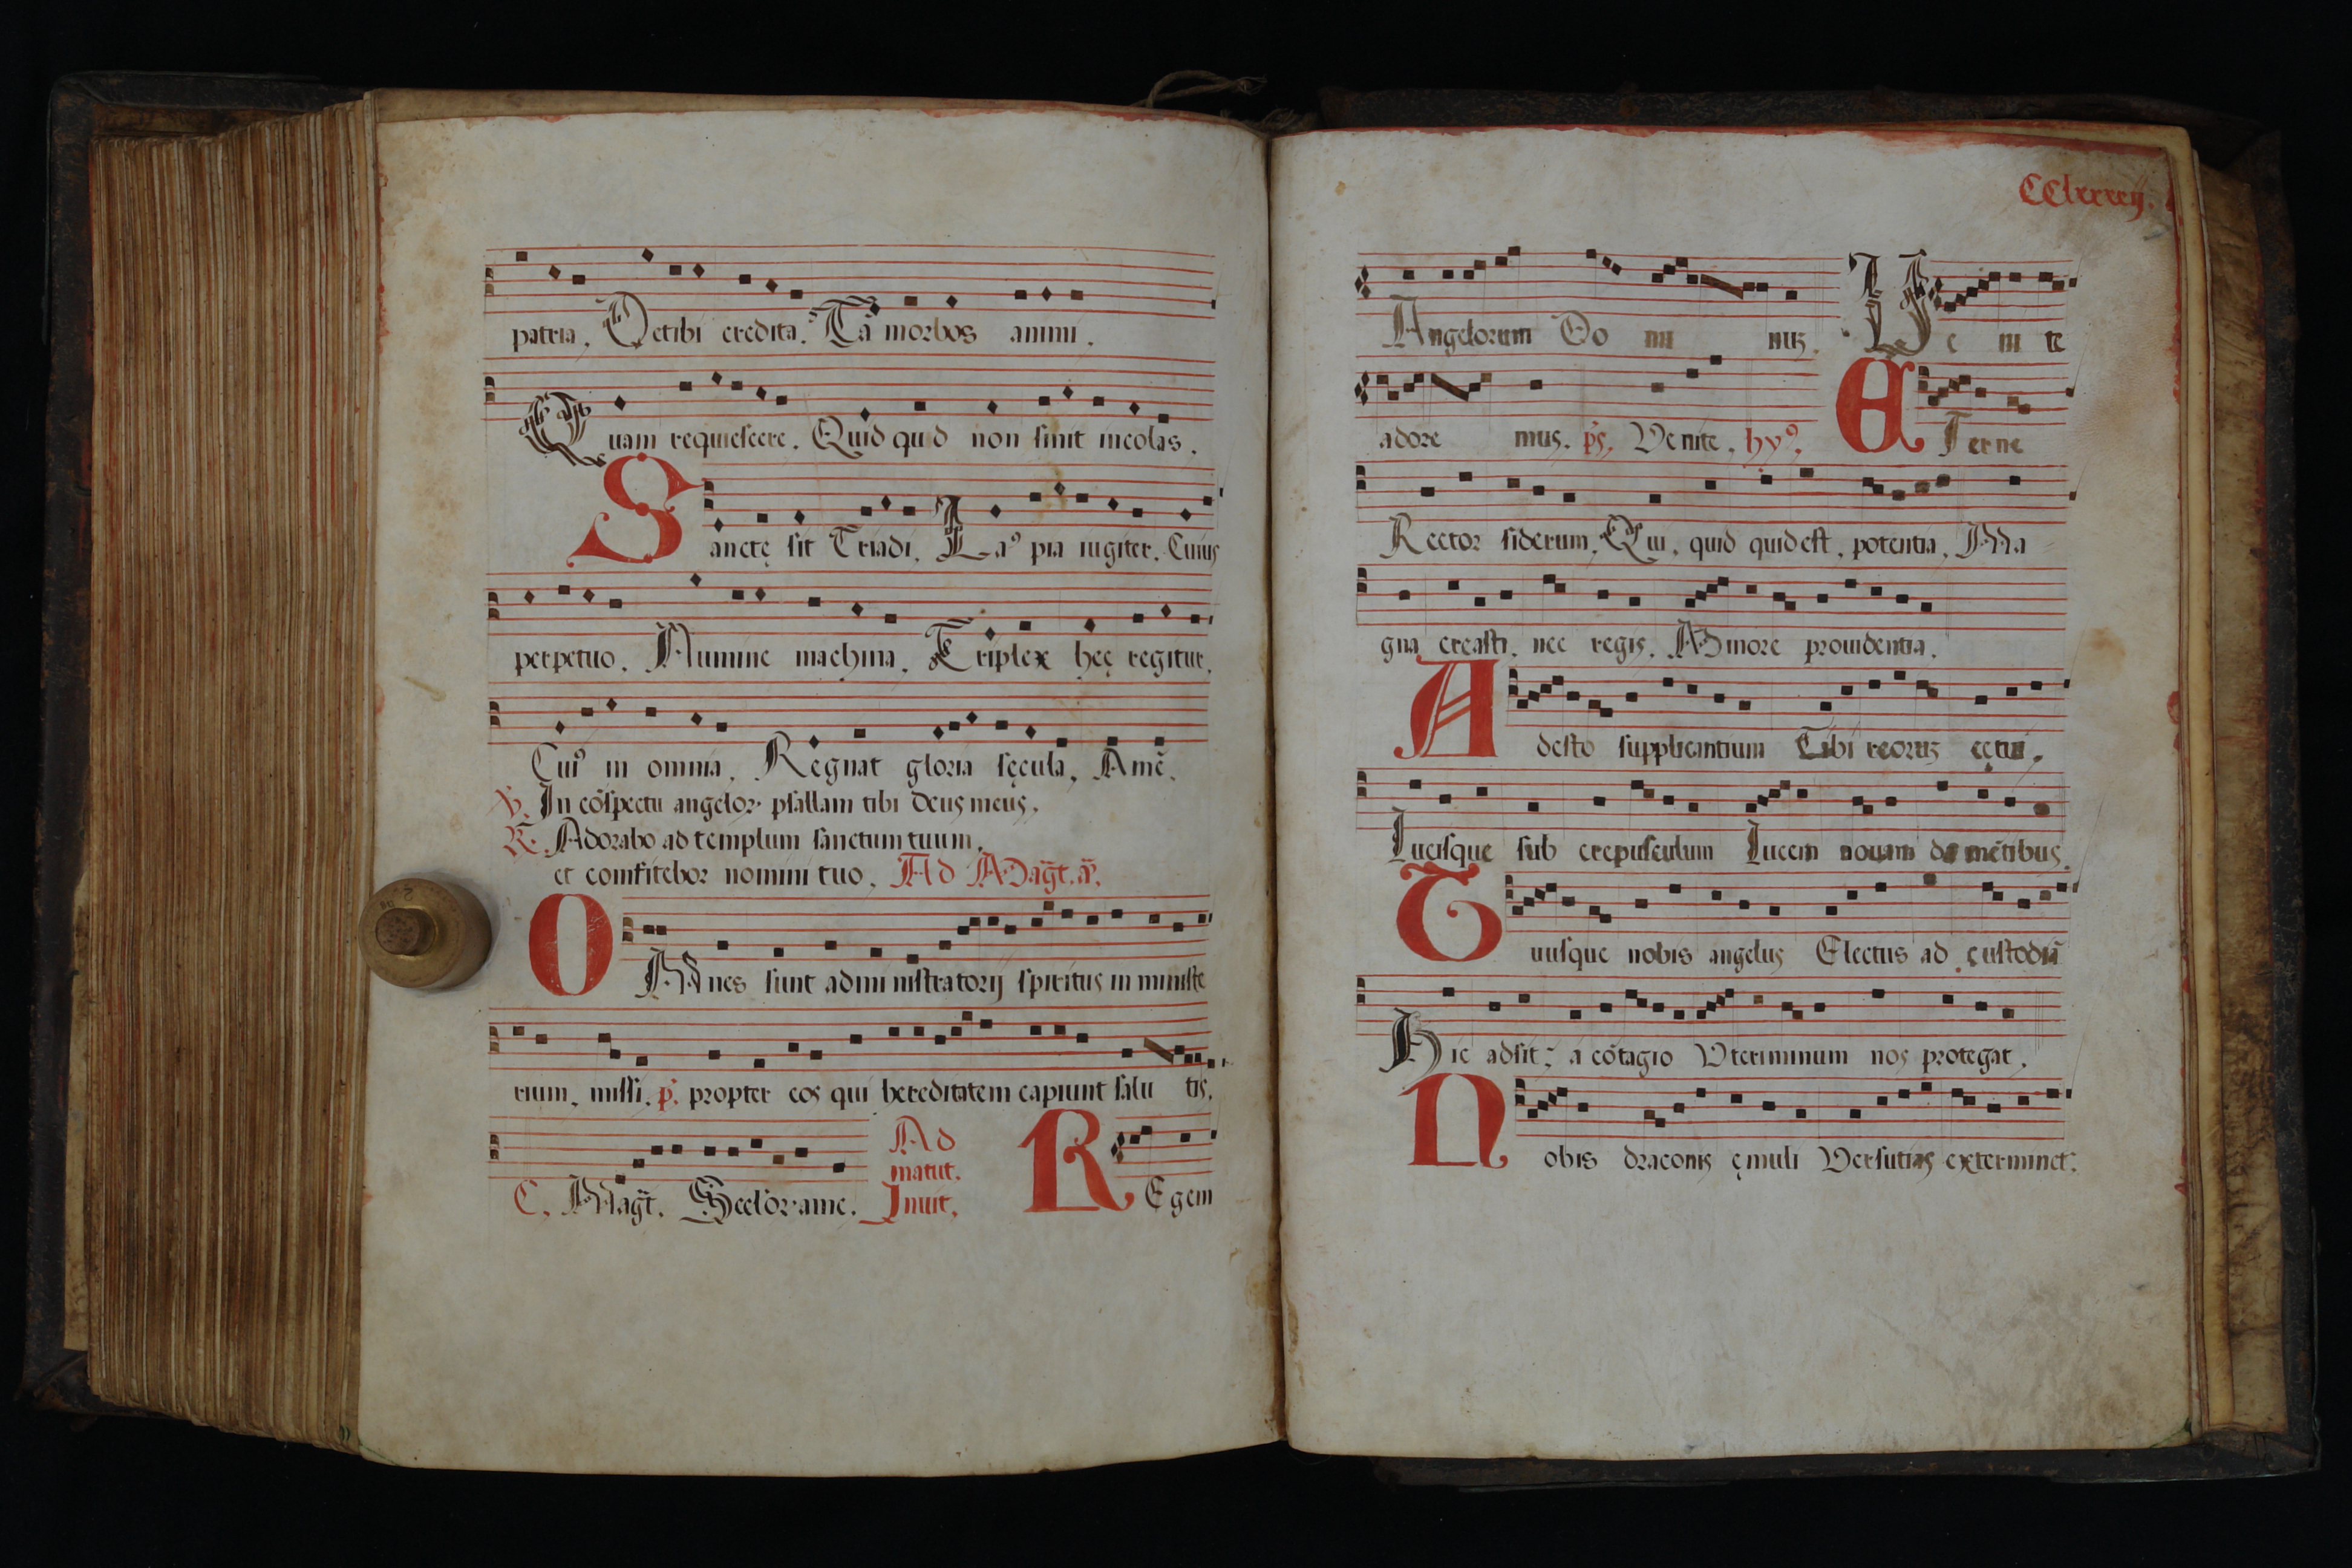 patria. Vetibi credita. Tā morbos animi.
Quam requiescere. Quid quid non sinit incolas.
Sanctę sit Triadi. Laꝰ pia iugiter. Cuius
perpetuo. Numine machina. Triplex hęc regitur.
Cuiꝰ in omnia. Regnat gloria sęcula. Amē.
℣. In cōspectu angeloꝝ psallam tibi deus meus.
℟. Adorabo ad templum sanctum tuum.
et confitebor nomini tuo. Ad Magt̄. a͞.
OMnes sunt admini nistratorij spiritus in ministe
rium. missi. p̄. propter eos qui hereditatem capiunt salu tis.
C. Magt̄. Secl'oꝝ ame. Ad matut. Inuit. REgem
CClxxxxij.
Angelorum Do mi nus. Ve ni te
adore mus. ps. Venite. hyꝰ. ETerne
Rector siderum. Qui, quid quid est, potentia. Ma
gna creasti. nec regis. Minore prouidentia.
Adesto supplicantium Tibi reorus cętui.
Lucisque sub crepusculum Lucem nouam da mētibus.
Tuusque nobis angelus Electus ad custodiā
Hic adsit: a cōtagio Vt criminum nos protegat.
Nobis draconis ęmuli Versutias exterminet: